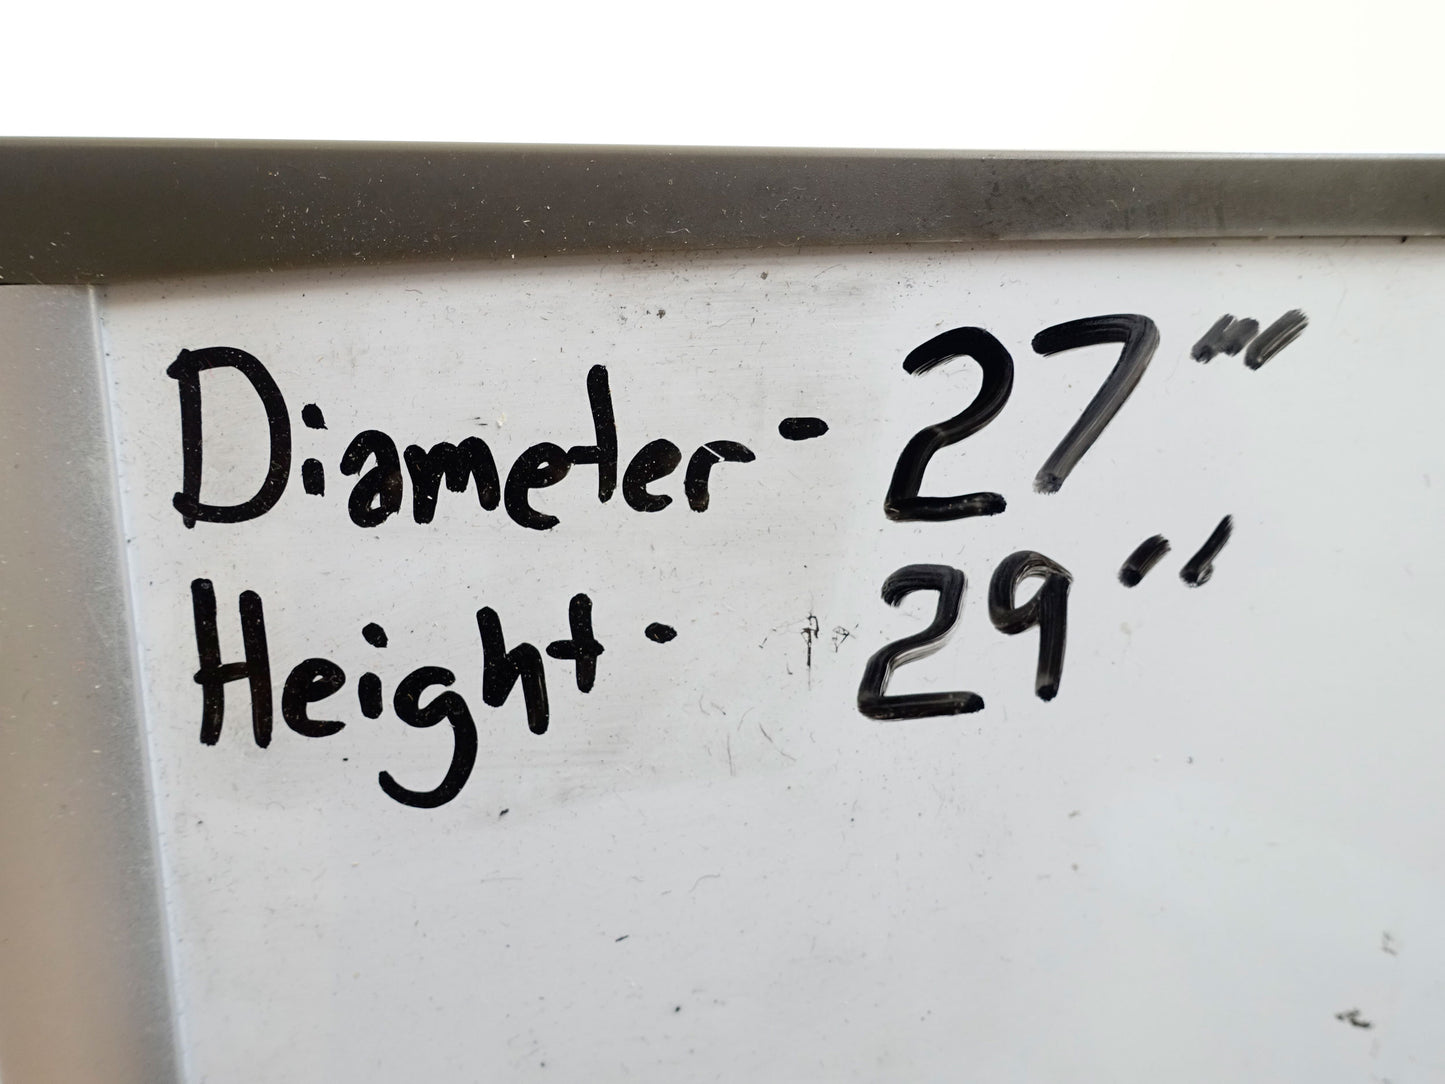 Diameter - 27"
Height - 29"